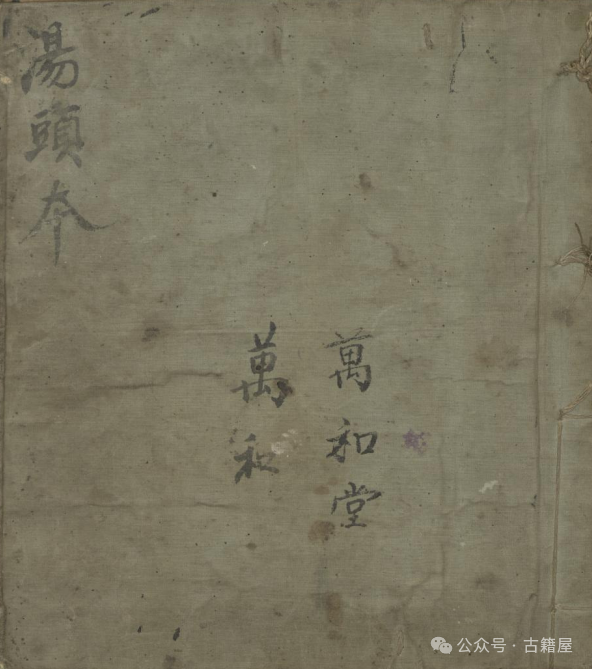 湯頭本
萬和堂
萬和
公众号·古籍屋